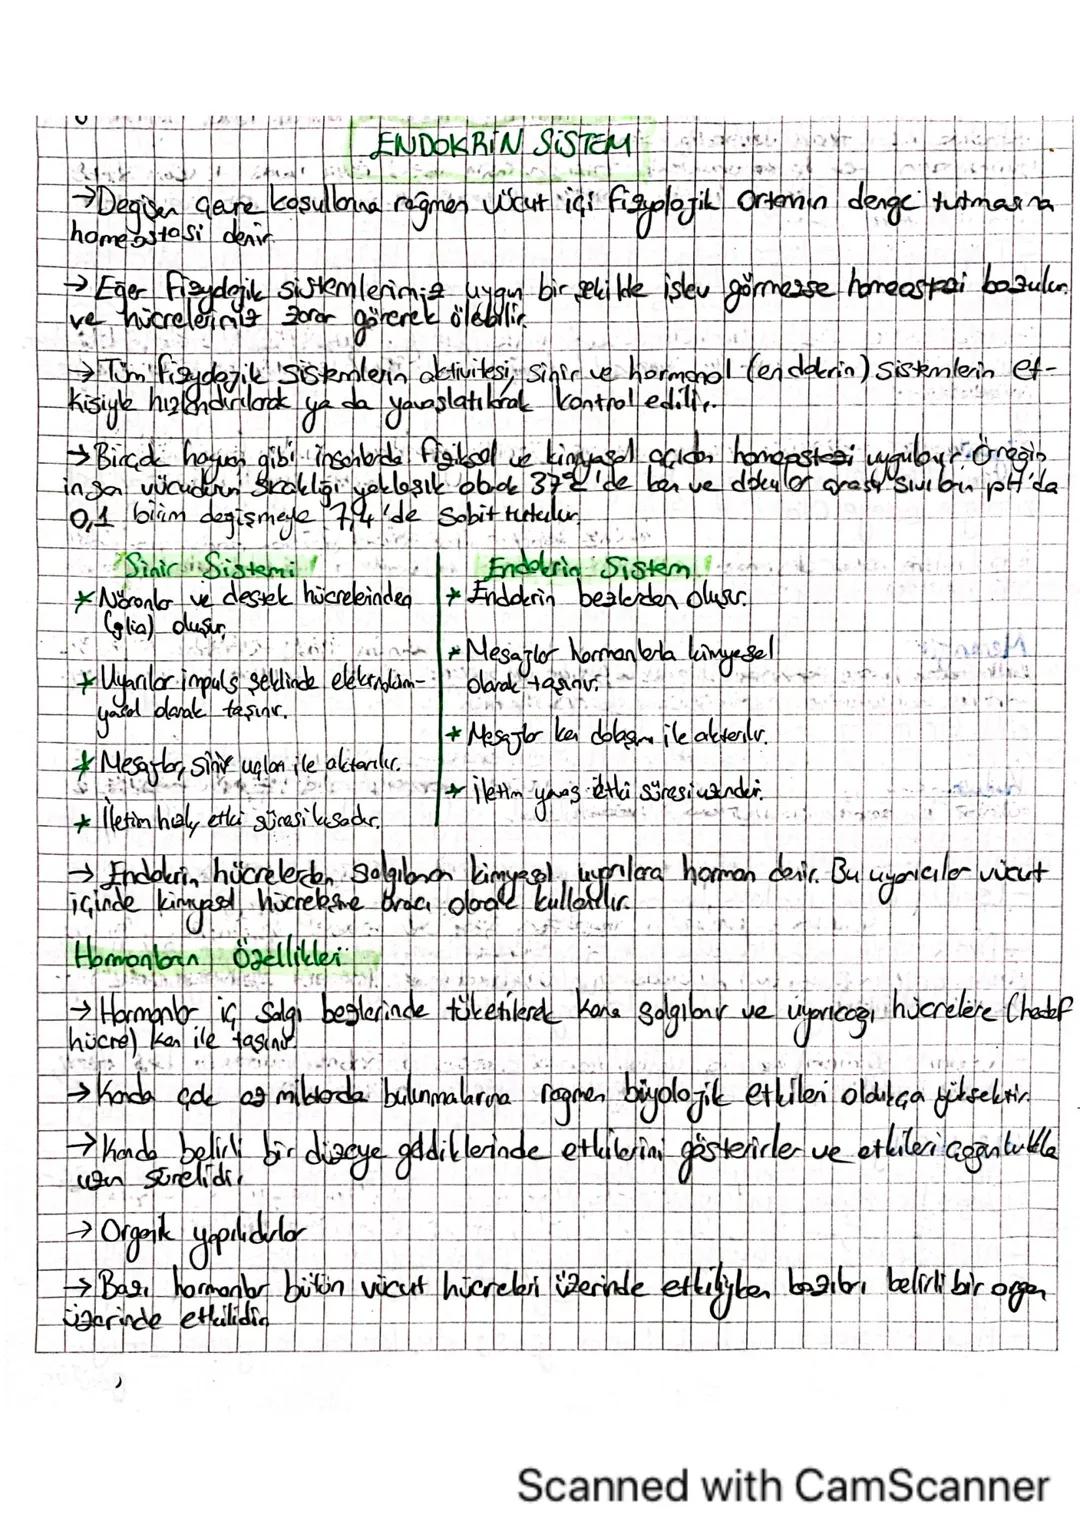 ENDOKRİN SİSTEM
→ Değişen çevre koşullarına rağmen vücut içi fizyolojik ortamın denge tutmasına
homeostasi denir.
→ Eğer fizyolojik sistemlerimiz uygun bir şekilde işlev görmezse homeostazi bozulur
ve hücrelerimiz zarar görerek ölebilir.
→ Tüm fizyolojik sistemlerin aktivitesi, sinir ve hormonal (endokrin) sistemlerin et-
kisiyle hızlandırılarak ya da yavaşlatılarak kontrol edilir.
→ Birçok hayvan gibi insanlarda fiziksel ve kimyasal açıdan homeostazi uygulanır. Örneğin
insan vücudunun sıcaklığı yaklaşık olarak 37°C'de kan ve dokular arası sıvıların pH'da
0,1 birim değişmeyle 7,4'de sabit tutulur.
Sinir Sistemi
* Nöronlar ve destek hücrelerinden
(glia) oluşur.
* Uyarılar impuls şeklinde elektrokim-
yasal olarak taşınır.
* Mesajlar, sinir uçları ile aktarılır.
* İletim hızlı, etki süresi kısadır.
Endokrin Sistem
* Endokrin bezlerden oluşur.
* Mesajlar hormonlarla kimyasal
olarak taşınır.
* Mesajlar kan dolaşımı ile aktarılır.
* İletim yavaş etki süresi uzundur.
→ Endokrin hücrelerden salgılanan kimyasal uyarılara hormon denir. Bu uyarıcılar vücut
içinde kimyasal haberleşme aracı olarak kullanılır.
Hormonların Özellikleri
→ Hormonlar iç salgı bezlerinde tüketilerek kana salgılanır ve uyaracağı hücrelere (hedef
hücre) kan ile taşınır.
→ Kanda çok az miktarda bulunmalarına rağmen biyolojik etkileri oldukça yüksektir.
→ Kanda belirli bir düzeye geldiklerinde etkilerini gösterirler ve etkileri çoğunlukla
uzun sürelidir.
→ Organik yapılıdırlar
→ Bazı hormonlar bütün vücut hücreleri üzerinde etkiliyken bazıları belirli bir organ
üzerinde etkilidir.
Scanned with CamScanner